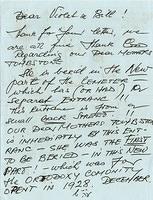 Dear Violet & Bill!
Thank for your letter, we
are all fine Thank GOD
Regarding our Dear MOTHERS
TOMBSTONE
She is buried in the NEW
PARTY of the CEMETER -
which has (or HAD), A
SEPARET ENTRANC. -
This ENTRANCE is from a
small BACK STREET -
OUR DEAR MOTHERS TOMBSTON
is IMMEDIATLY BY THIS ENT-
RANC - SHE WAS THE FIRST
TO BE BERIED - IN THIS NEW
PART - which was FOR
THE ORTODOXY COMUNITY
OPENT IN 1928. DECEMBER